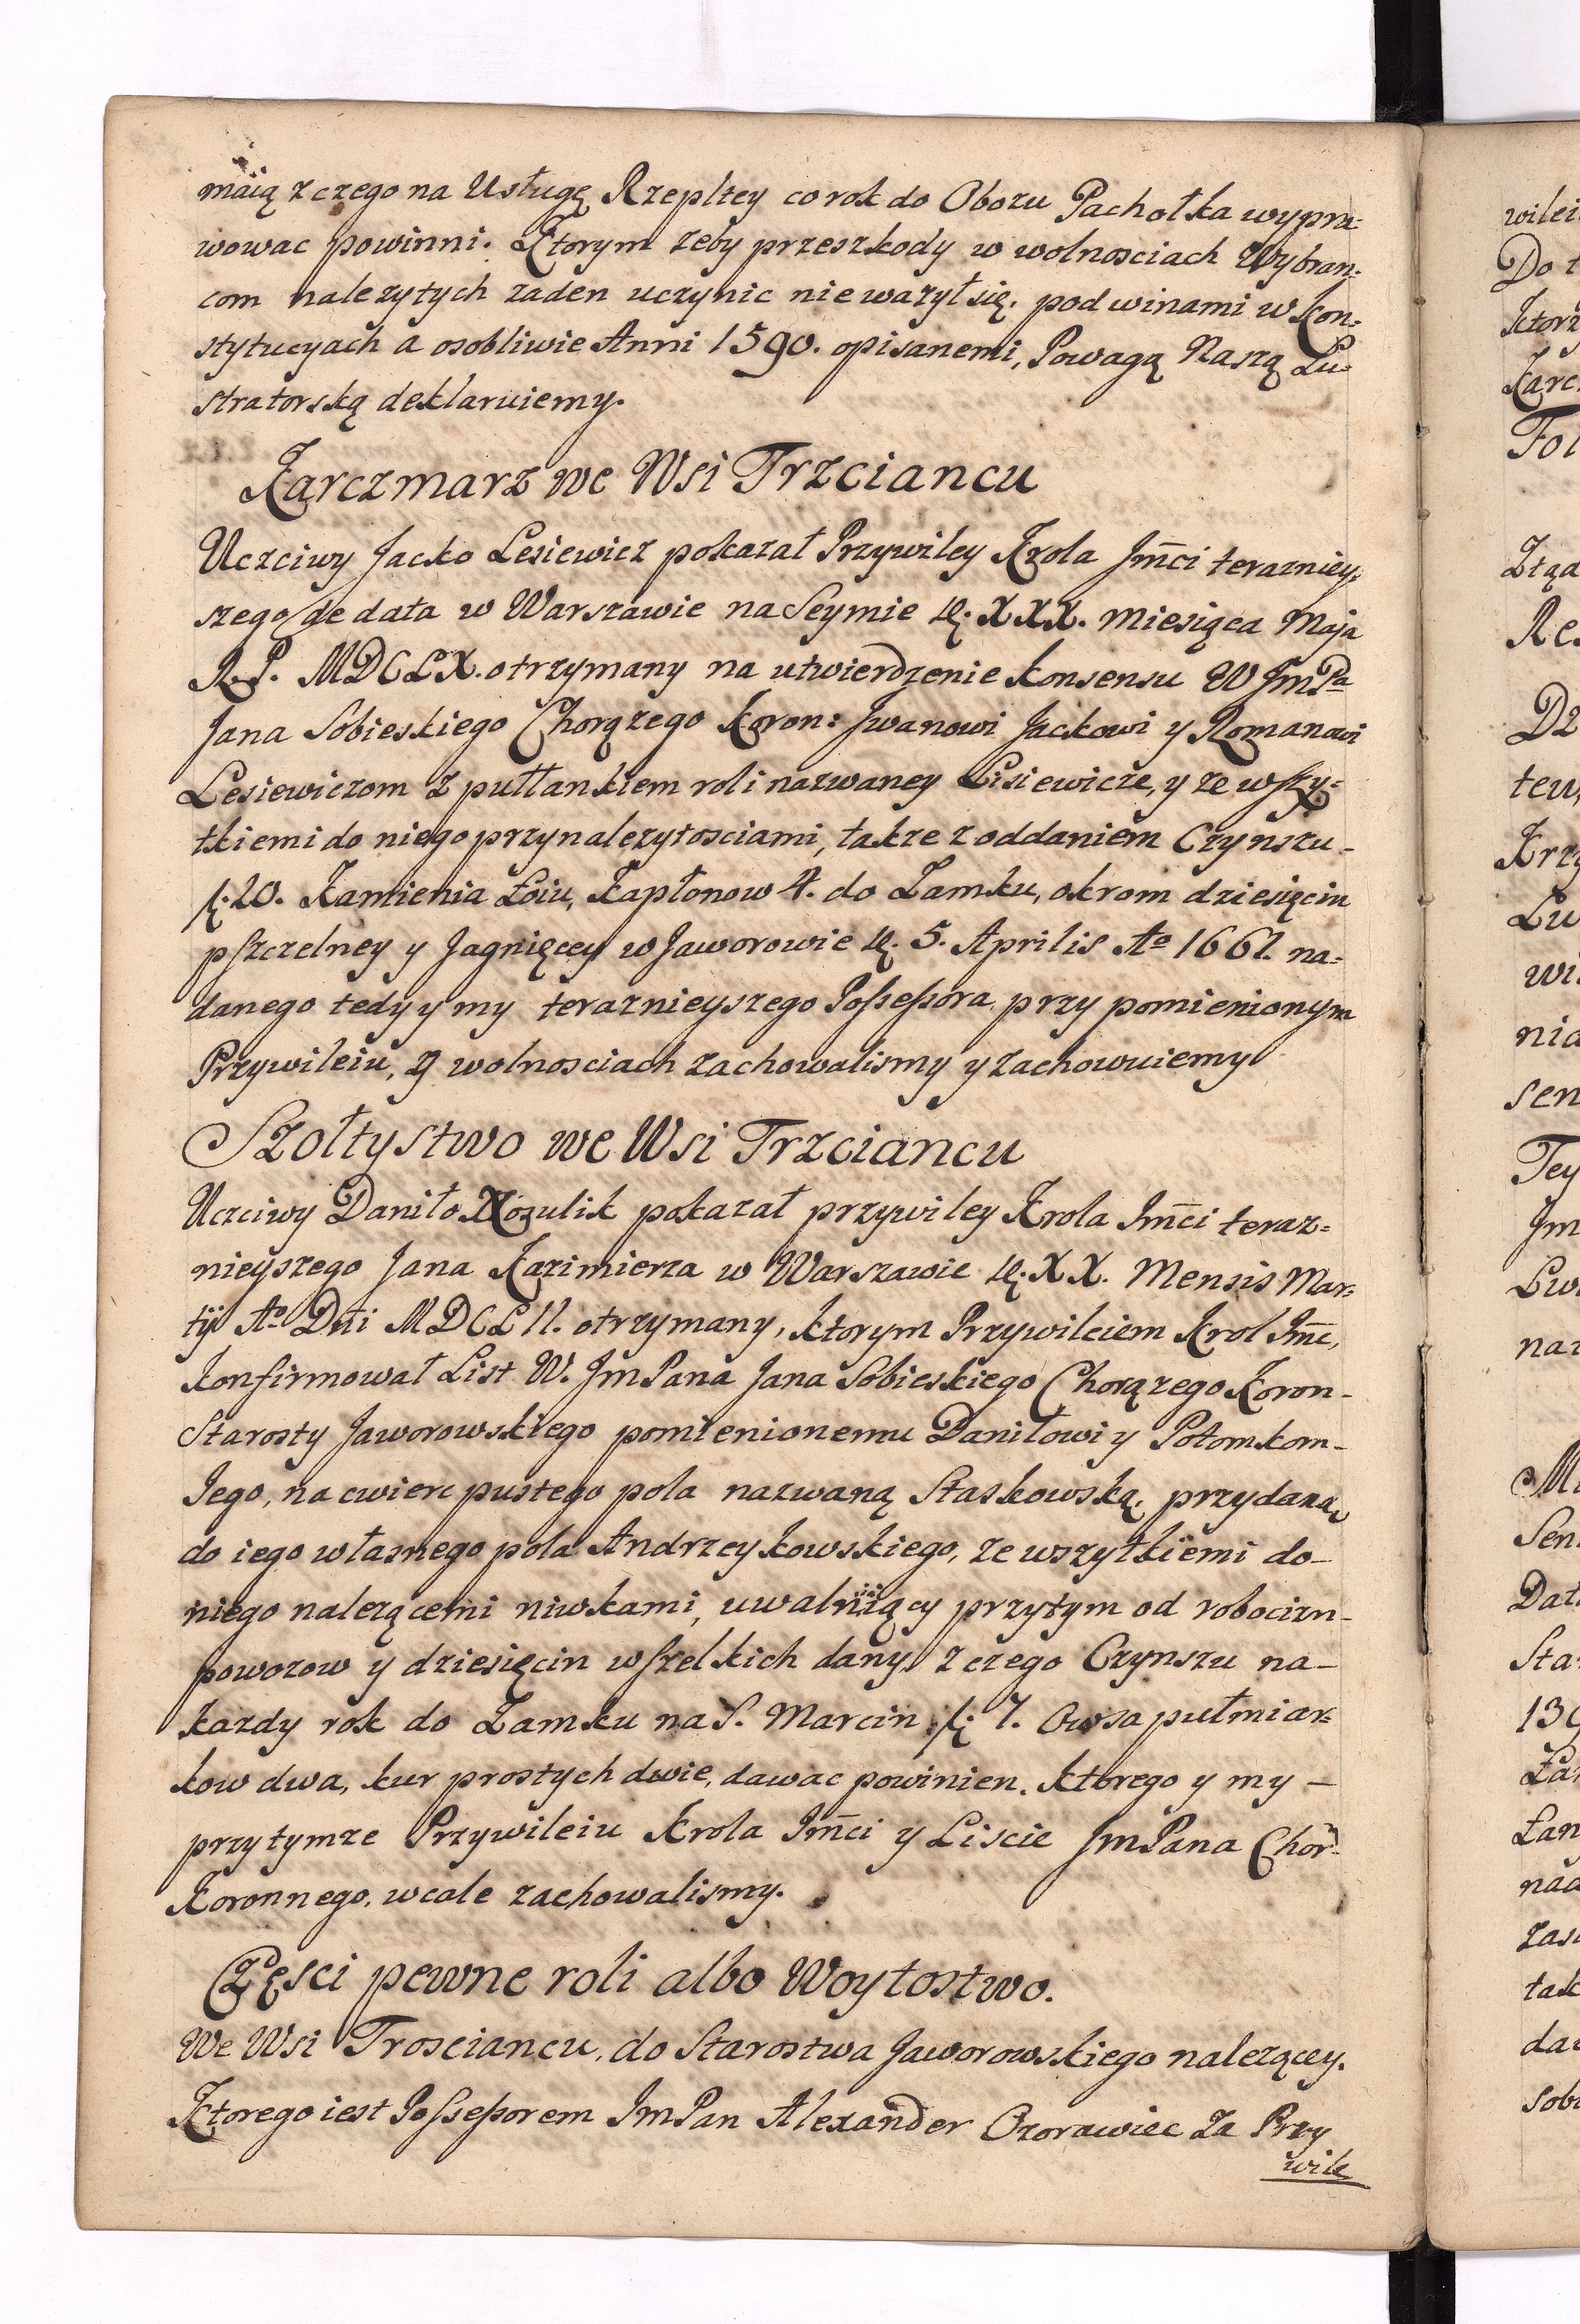 maią z czego na Usługę Rzepltey co rok do Obozu Pachołka wypra-
wowac powinni. Ktorym zeby przeszkody w wolnosciach Wybran:
com nalezytych zaden uczynic nie wazył się. pod winami w Kon:
stytucyach a osobliwie Anni 1590. opisanemi, Powagą Naszą Lu-
stratorską deklaruiemy.
Karczmarz we Wsi Trzciancu
Uczciwy Jacko Lesiewicz pokazał Przywiley Krola Jmci terazniey:
szego de data w Warszawie na Seymie d. XXX. Miesiąca Maja
R. P. MDCLX. otrzymany na utwierdzenie Konsensu W JmPa
Jana Sobieskiego Chorązego Koron: Jwanowi Jackowi y Romanowi
Lesiewiczom z pułłankiem roli nazwaney Lisiewicze, y ze wszy:
tkiemi do niego przynalezytosciami, takze z oddaniem Czynszu-
f. 20. Kamienia Łoiu, Kapłonow 4. do Zamku, okrom dziesięcin
pszczelney y Jagnięcey w Jaworowie d. 5. Aprilis Ao 1661. na-
danego tedy y my teraznieyszego Possessora przy pomienionym
Przywileiu, y wolnosciach zachowalismy y zachowuiemy
Szołtystwo we Wsi Trzciancu
Uczciwy Daniło Kozulik pokazał przywiley Krola Jmci teraz=
nieyszego Jana Kazimierza w Warszawie d. XX. Mensis Mar:
tij Ao Dni MDCLII. otrzymany, Ktorym Przywileiem Krol Jmc,
Konfirmował List W. JmPana Jana Sobieskiego Chorązego Koron-
Starosty Jaworowskiego pomienionemu Daniłowi y Potomkom-
Jego, na cwierc pustego pola nazwaną Staskowską, przydaną
do iego własnego pola Andrzeykowskiego, ze wszytkiemi do-
niego nalezącemi niwkami, uwalniiący przytym od robocizn-
powozow y dziesięcin wszelkich dany z czego Czynszu na-
kazdy rok do Zamku na S. Marcin f. 7. Owsa pułmiar=
kow dwa, kur prostych dwie, dawac powinien. Ktorego y my -
przy tymze Przywileiu Krola Jmci y Liscie JmPana Chor:
Koronnego, wcale zachowalismy.
Częsci pewne roli albo Woytostwo.
We Wsi Trosciancu, do Starostwa Jaworowskiego nalezącey.
Ktorego iest Possessorem JmPan Alexander Ozorawiec za Przy
wile